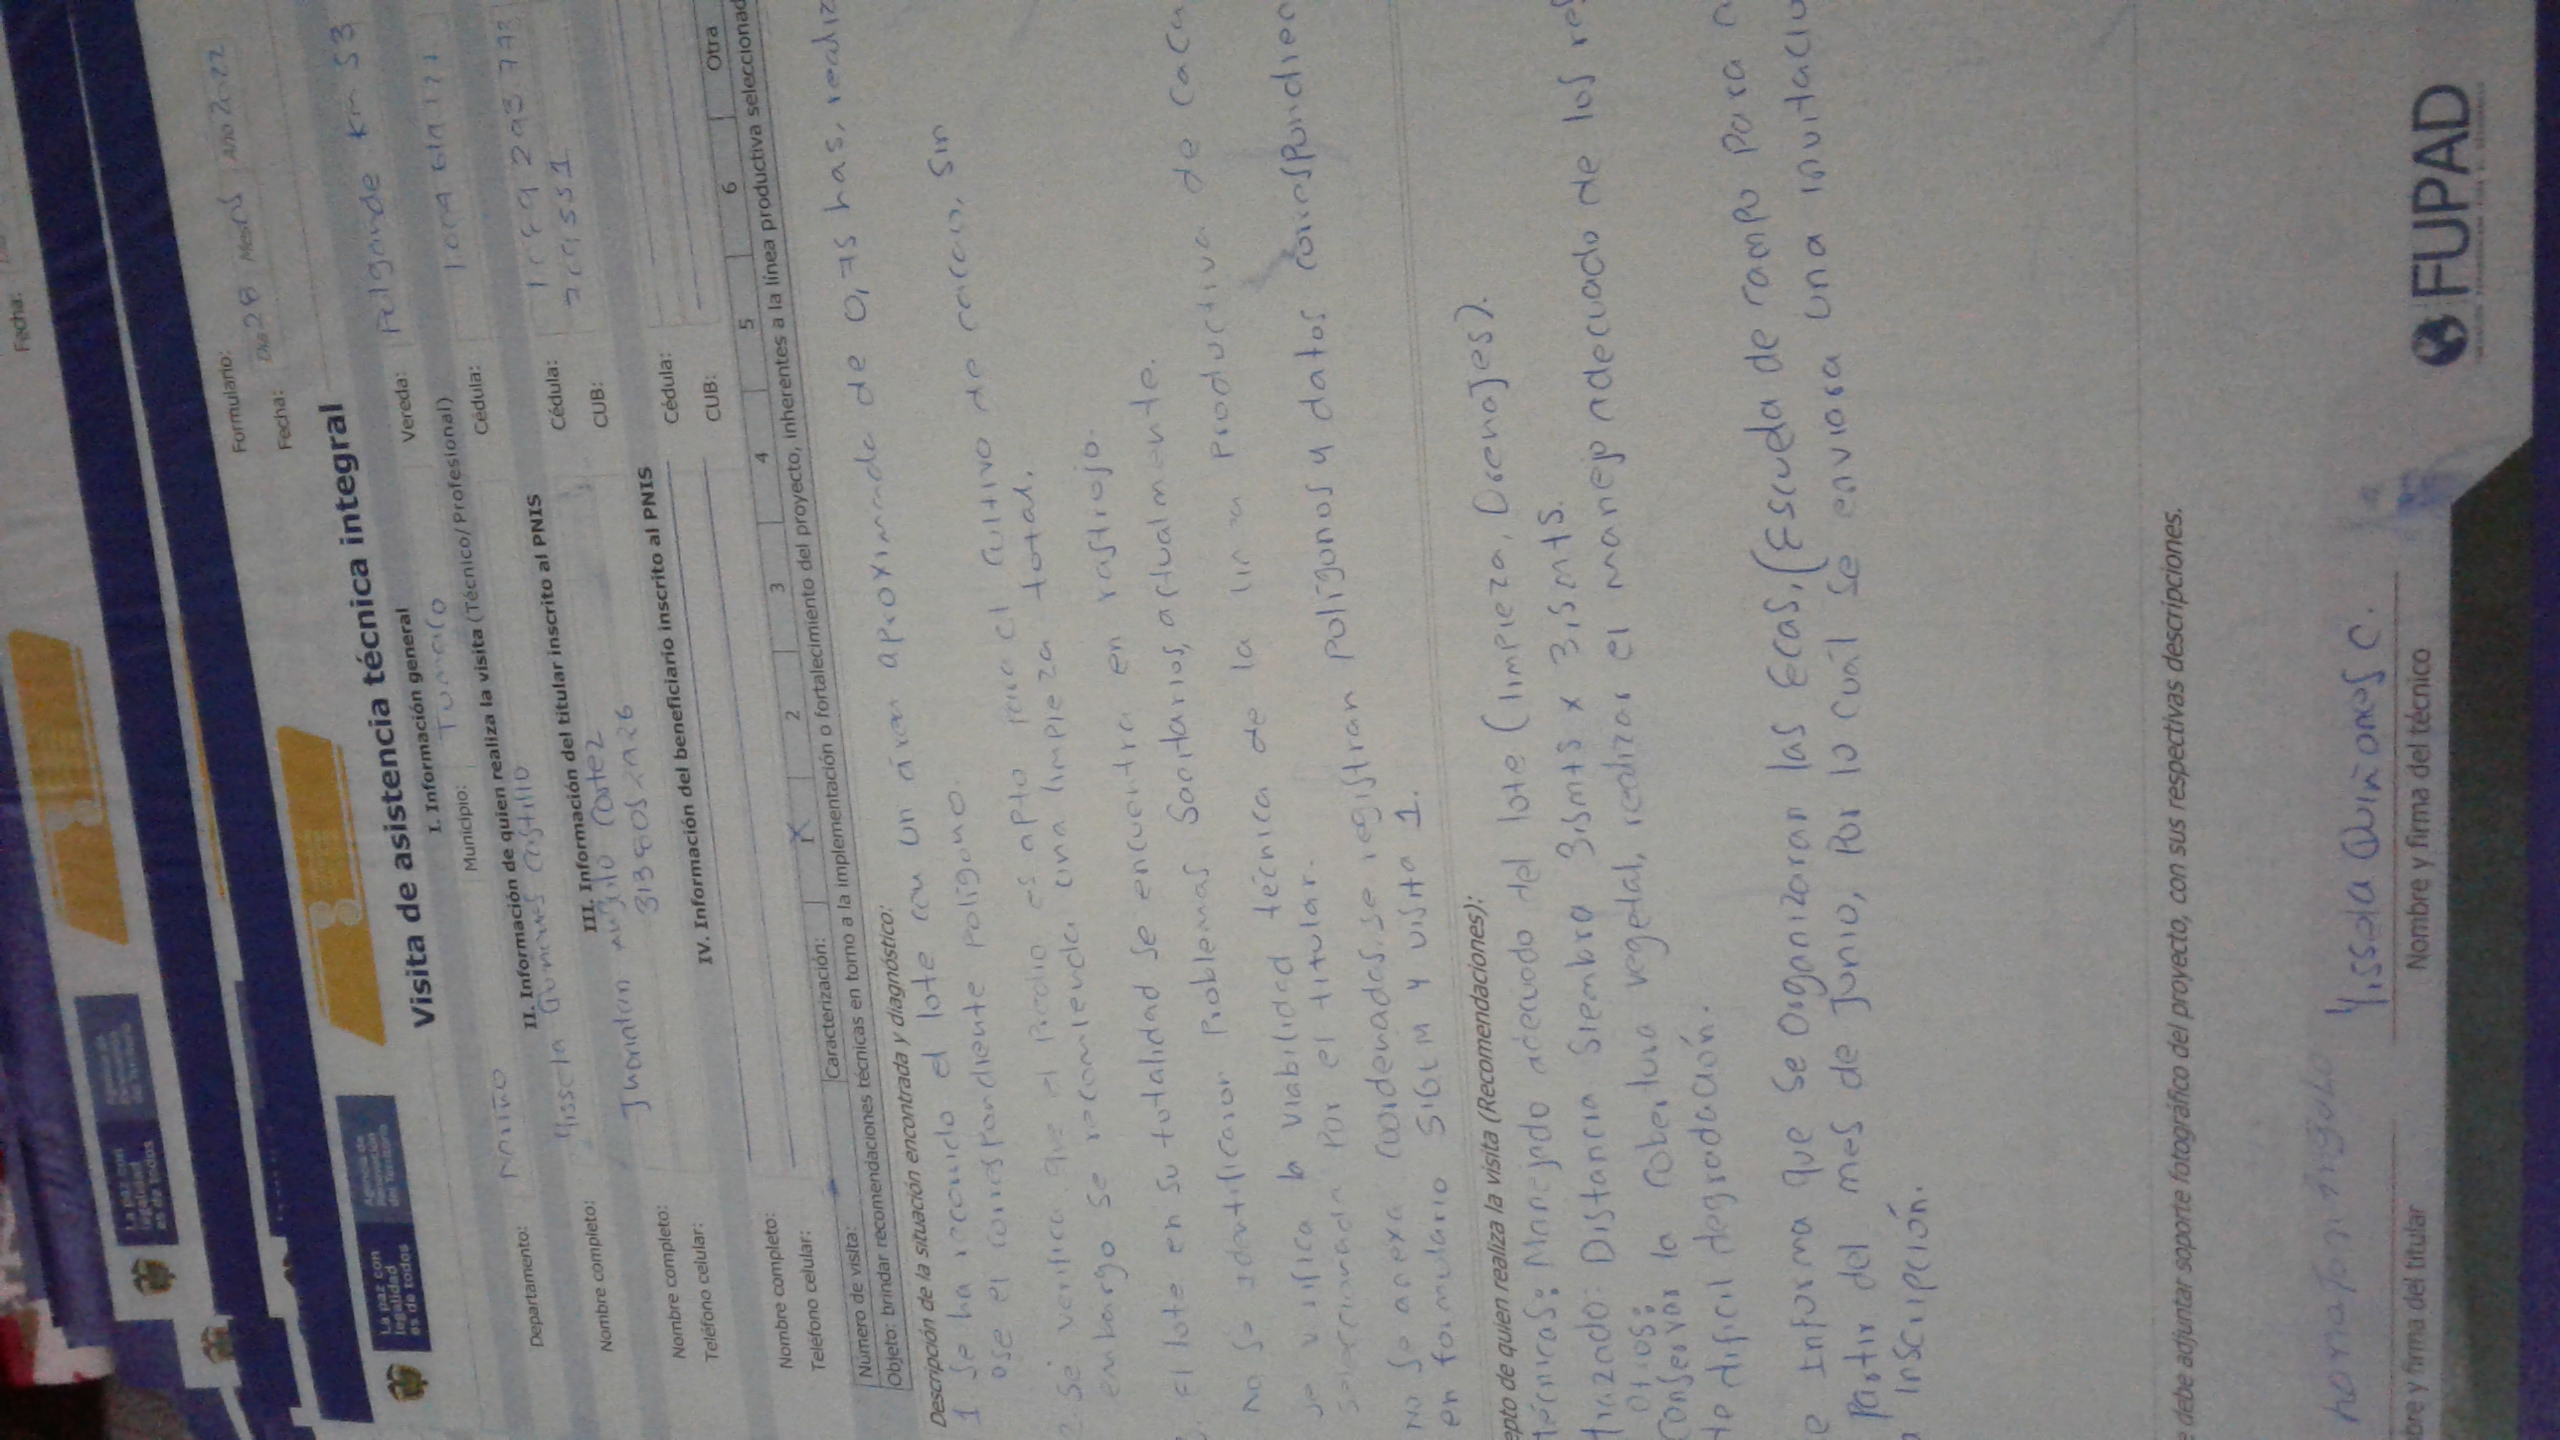 Fecha:
Formulario:
Fecha: Dia 28 Mes 05 Año 2022
La paz con legalidad es de todos
Agencia de Renovación del Territorio
Visita de asistencia técnica integral
I. Información general
Departamento: Nariño Municipio: Tumaco Vereda: Pulgande Km 53
II. Información de quien realiza la visita (Técnico/Profesional)
Nombre completo: Yissela Quiñones Castillo Cédula:
III. Información del titular inscrito al PNIS
Nombre completo: Jhonatan Angulo Cortez Cédula:
Teléfono celular: CUB:
IV. Información del beneficiario inscrito al PNIS
Nombre completo: Cédula:
Teléfono celular: CUB:
Número de visita: Caracterización: 1 X 2 3 4 5 6 Otra
Objeto: brindar recomendaciones técnicas en torno a la implementación o fortalecimiento del proyecto, inherentes a la línea productiva seleccionad
Descripción de la situación encontrada y diagnóstico:
1 Se ha recorrido el lote con un área aproximada de 0,75 has, realiz
ose el correspondiente polígono.
2. Se verifica que el Predio es apto para el cultivo de cacao, sin
embargo se recomienda una limpieza total.
El lote en su totalidad se encuentra en rastrojo.
No se identificaron Problemas Sanitarios, actualmente.
Se verifica la viabilidad técnica de la linea Productiva de Caca
seleccionada Por el titular.
No se anexa coordenadas, se registran Polígonos y datos correspondien
en formulario SIGLM y visita 1.
epto de quien realiza la visita (Recomendaciones):
técnicas: Manejado adecuado del lote (limpieza, Drenajes).
trazado: Distancia Siembra 3,5mts x 3,5mts.
otros:
Conservar la cobertura vegetal, realizar el manejo adecuado de los res
de dificil degradación.
e Informa que Se Organizaran las Ecas, (Escuela de campo Para
Partir del mes de Junio, Por lo cuál Se enviara una invitació
inscripción.
e debe adjuntar soporte fotográfico del proyecto, con sus respectivas descripciones.
Yissela Quiñones C.
bre y firma del titular Nombre y firma del técnico
FUPAD